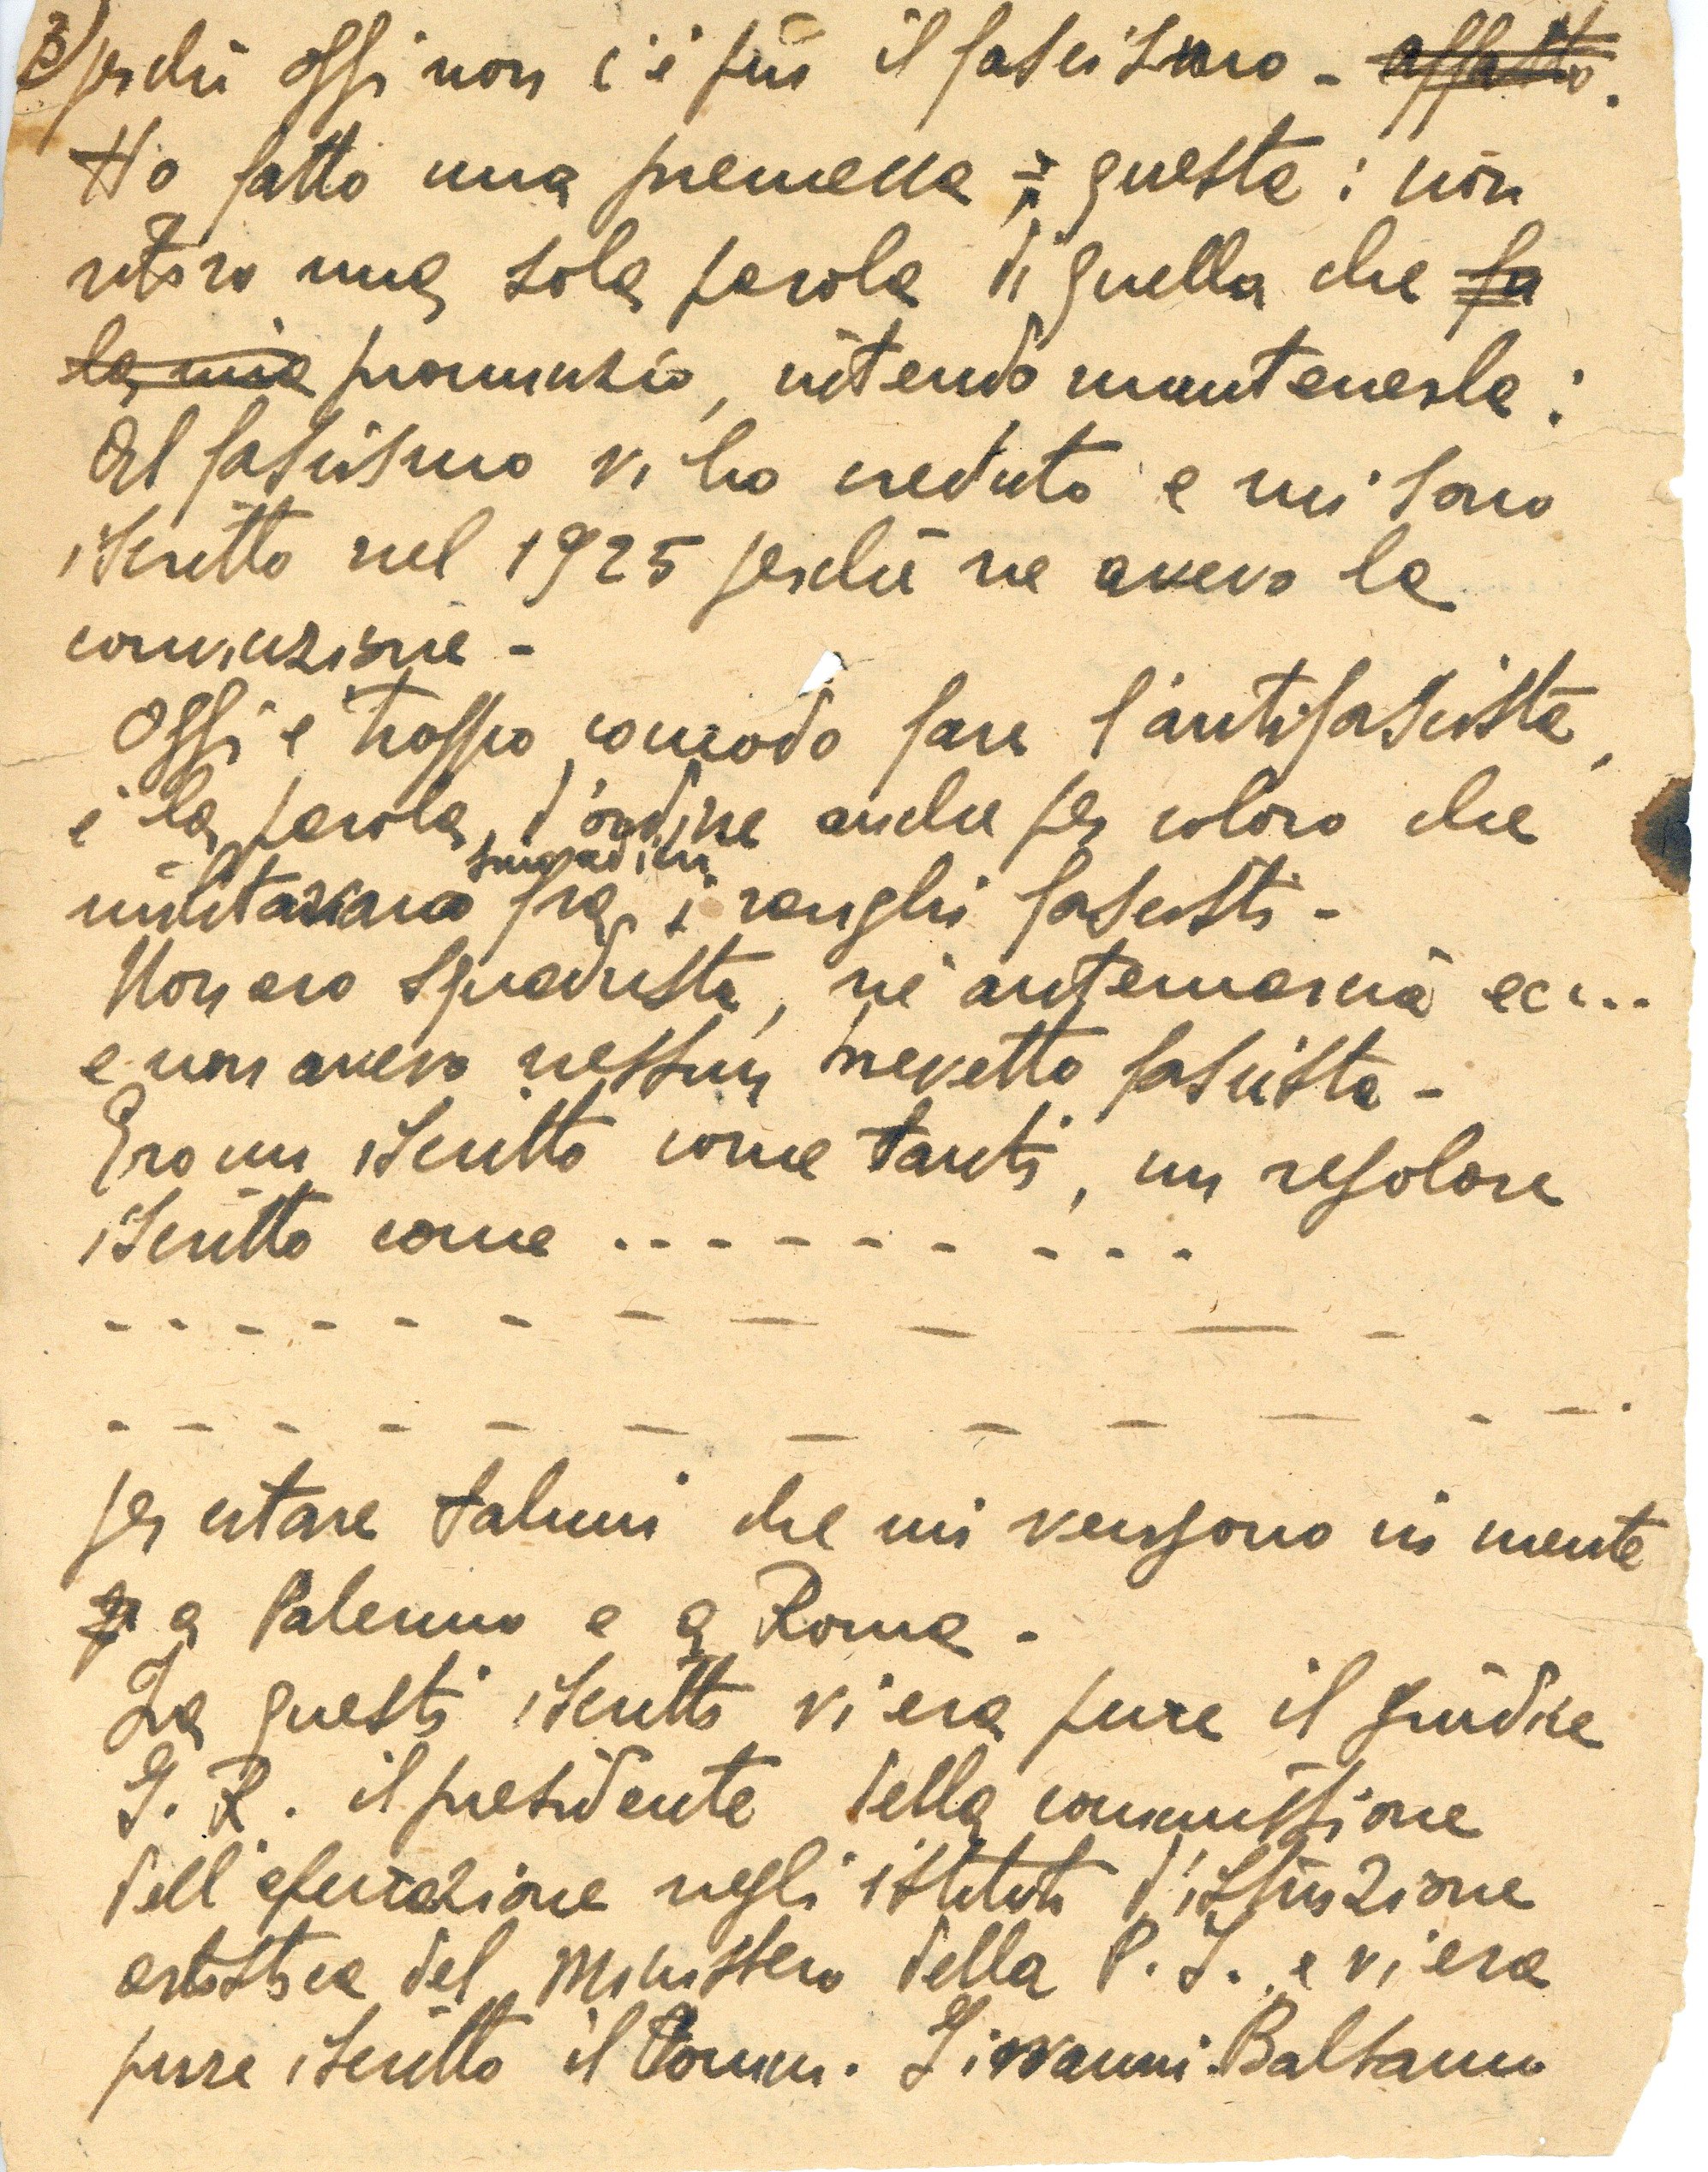 3) perchè oggi non c'è più il fascismo - affatto.
Ho fatto una premessa questa: non
ritiro una sola parola di quella che fu
la mia pronunzio, intendo mantenerla:
Al fascismo vi ho creduto e mi sono
iscritto nel 1925 perchè ne avevo la
convinzione -
Oggi è troppo comodo fare l'antifascista,
è la parola d'ordine anche per coloro che
militavano fra i ranghi fascisti -
Non ero squadrista, nè antemarcia ecc...
e non avevo nessun brevetto fascista -
Ero un iscritto come tanti, un regolare
iscritto come . . . - - - - - - -
- - - - - - - - - - -
- - - - - - - - - - - -
per citare taluni che mi vengono in mente
a Palermo e a Roma -
Fra questi iscritti vi era pure il giudice
G. R. il presidente della commissione
dell'epurazione negli istituti d'istruzione
artistica del Ministero della P. I. e vi era
pure iscritto il Comm. Giovanni Balsamo